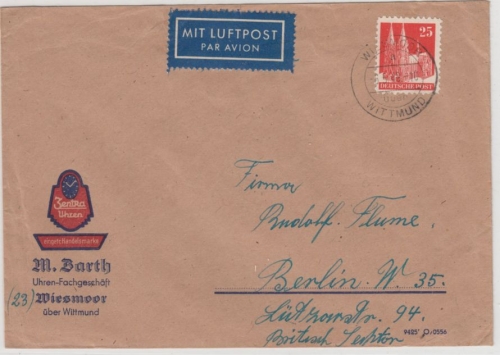 MIT LUFTPOST
PAR AVION
25
DEUTSCHE POST
WITTMUND
Firma
Rudolf Flume,
Berlin W. 35.
Lützowstr. 94.
Britisch Sektor
Zentra
Uhren
M. Barth
Uhren-Fachgeschäft
(23) Wiesmoor
über Wittmund